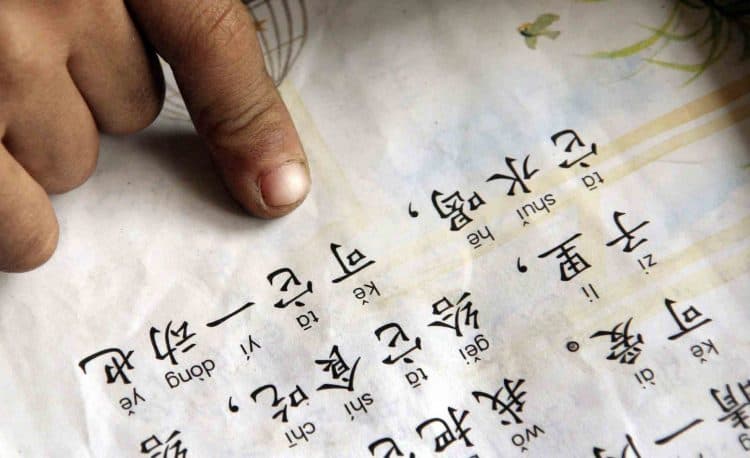 睛一
kě ài wǒ
可爱。我把它
zi lǐ gěi tā shí chī
子里，给它食吃，给
tā shuǐ hē kě tā yí dòng yě
它水喝，可它一动也